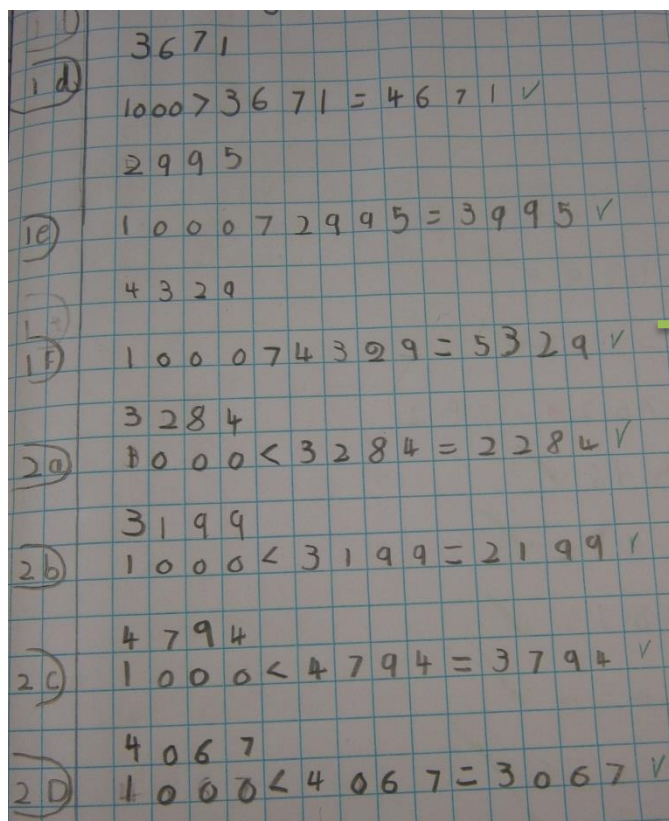 3671
1d
1000 > 3671 = 4671 ✓
2995
1e
1000 7 2995 = 3995 ✓
4329
1F
1000 7 4329 = 5329 ✓
3284
2a
1000 < 3284 = 2284 ✓
3199
2b
1000 < 3199 = 2199 ✓
4794
2C
1000 < 4794 = 3794 ✓
4067
2D
1000 < 4067 = 3067 ✓